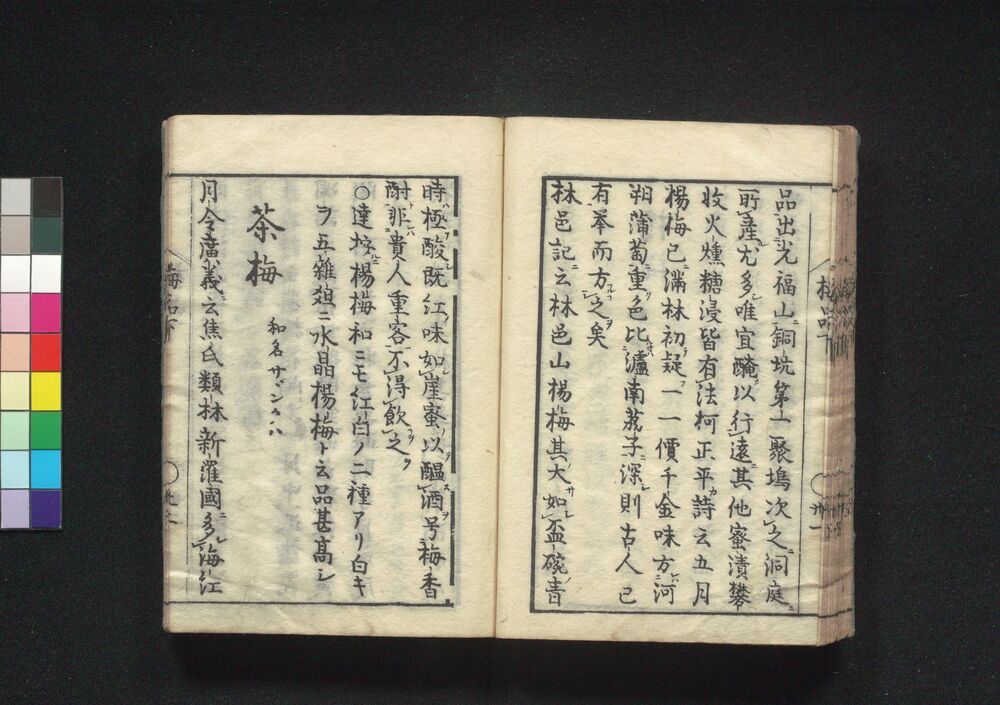 品出光福山銅坑第一聚塢次之洞庭
所産尤多唯宜醃以行遠其他蜜漬礬
收火燻糖浸皆有法柯正平詩云五月
楊梅已滿林初疑一一價千金味方河
朔蒲萄重色比瀘南荔子深則古人已
有挙而方之矣
林邑記云林邑山楊梅其大如盃碗青
時極酸既紅味如崖蜜以醞酒号梅香
酎非貴人重客不得飲之
〇達按楊梅和ニモ紅白ノ二種アリ白キ
ヲ五雜俎ニ水晶楊梅ト云品甚高シ
茶梅
和名サザンクハ
月令廣義云焦氏類林新羅國多海紅